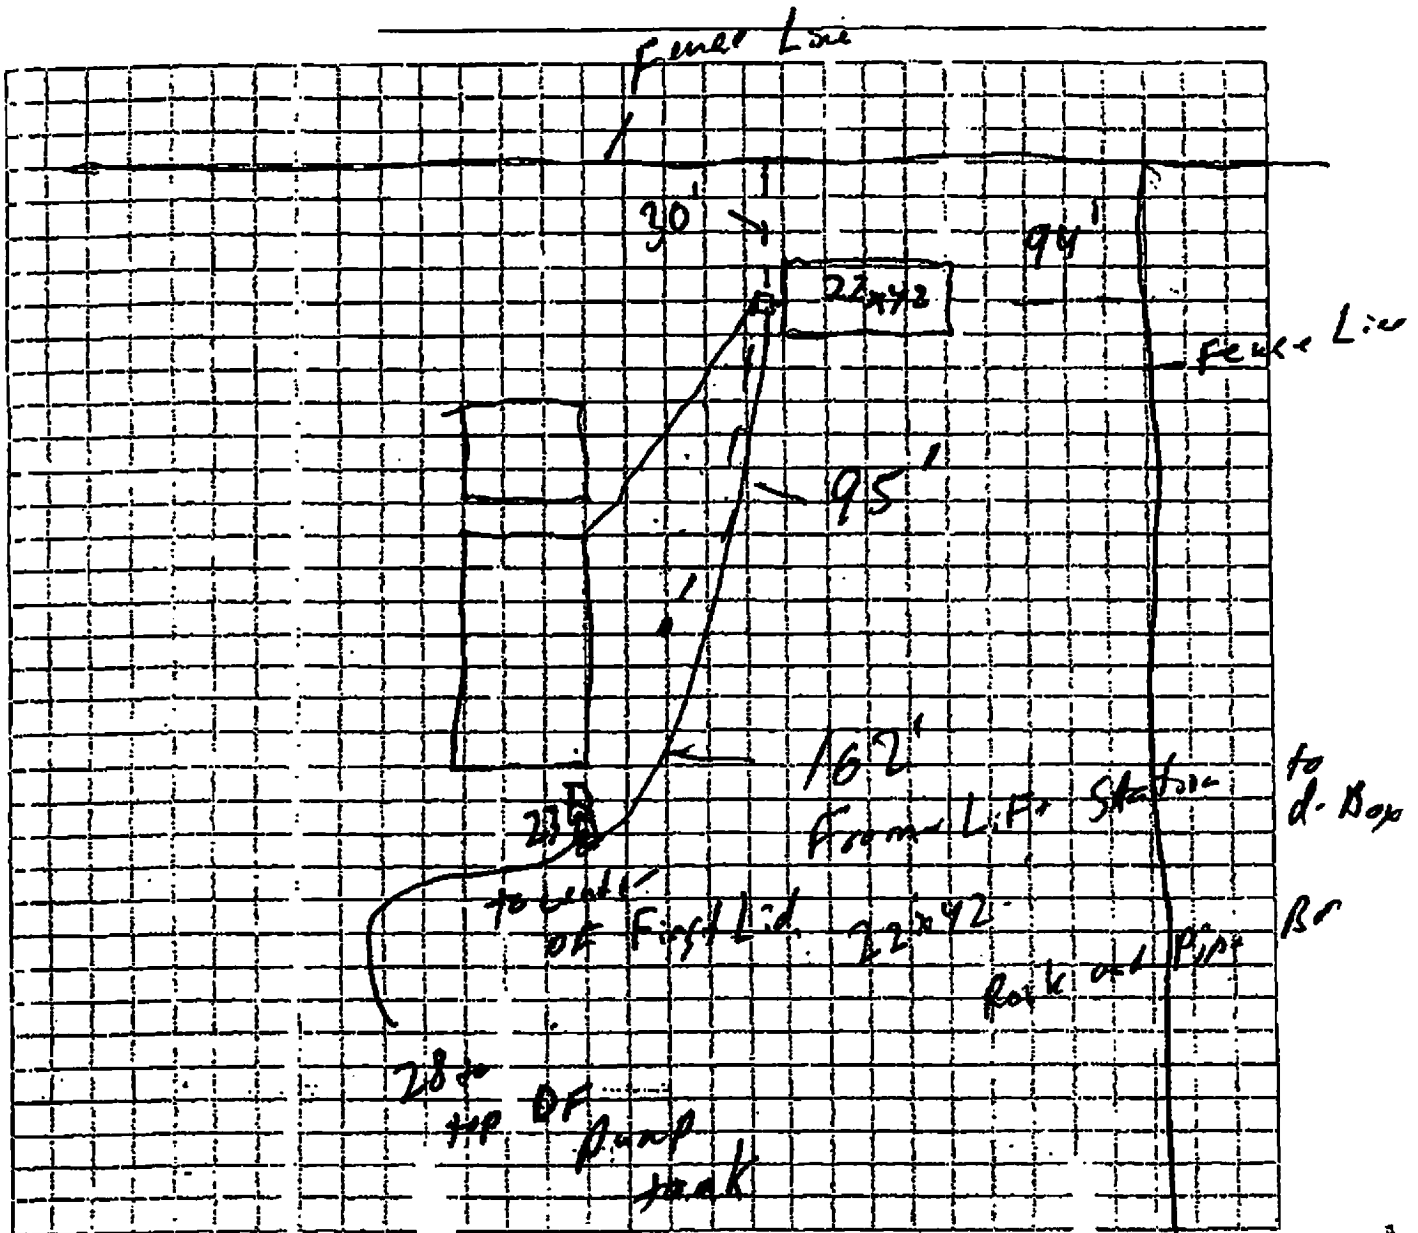 Fence Line
30'
94'
22x42
Fence Line
95'
162'
From Lift Station to d-Box
23
to cente
of First Lid
22x42
Rock and Pipe
28 to
top OF
pump
tank